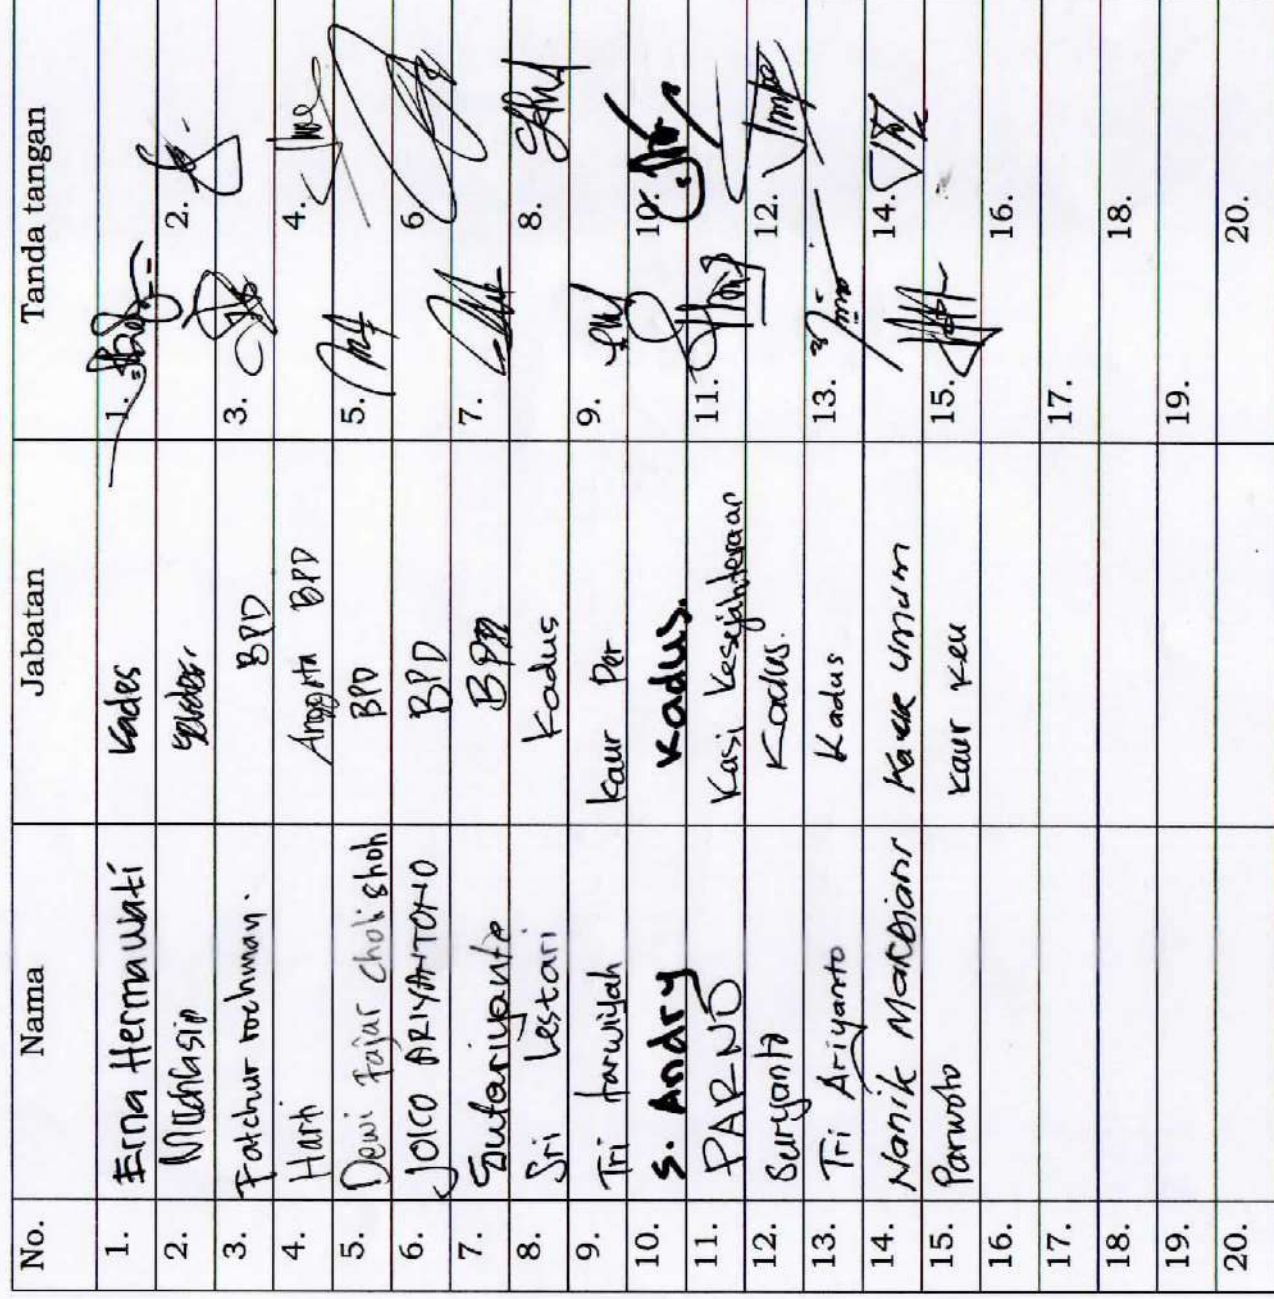 No. Nama Jabatan Tanda tangan
1. Erna Hermawati Kades 1.
2. Muchasip 2.
3. Fatchur rochman. BPD 3.
4. Harti Anggota BPD 4.
5. Dewi Fajar cholishoh BPD 5.
6. JOKO ARIYANTONO BPD 6.
7. Sutariyanto BPD 7.
8. Sri Lestari Kadus 8.
9. Tri tarwiyah Kaur Per 9.
10. S. Andry Kadus. 10.
11. PARNO Kasi Kesejahteraan 11.
12. Suryanto Kadus. 12.
13. Tri Ariyanto Kadus 13.
14. Nanik Mardiani Kaur umum 14.
15. Parwoto Kaur Keu 15.
16. 16.
17. 17.
18. 18.
19. 19.
20. 20.